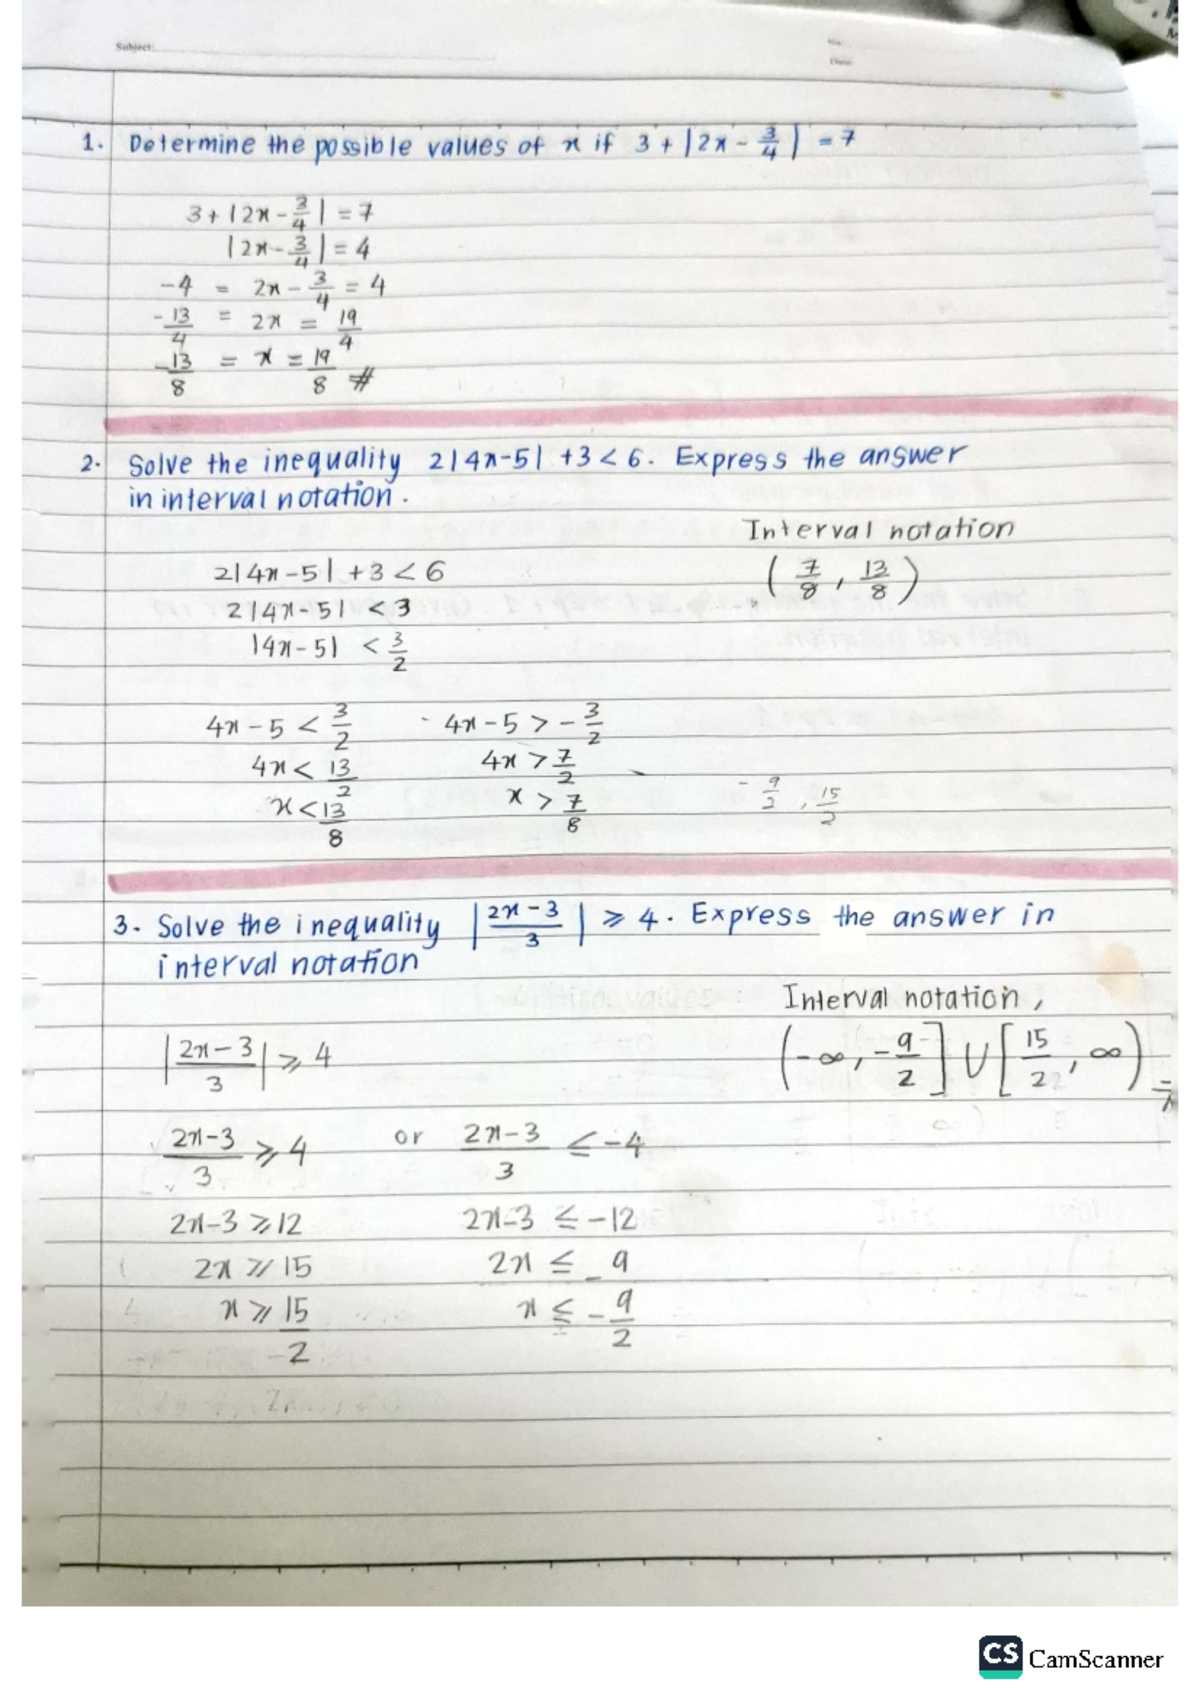 Subject:
No:
Date:
1. Determine the possible values of x if 3 + |2x - 3/4| = 7
3 + |2x - 3/4| = 7
|2x - 3/4| = 4
-4 = 2x - 3/4 = 4
-13/4 = 2x = 19/4
-13/8 = x = 19/8 #
2. Solve the inequality 2|4x-5| +3 < 6. Express the answer
in interval notation.
Interval notation
(7/8, 13/8)
2|4x-5| +3 < 6
2|4x-5| < 3
|4x-5| < 3/2
4x - 5 < 3/2 4x - 5 > -3/2
4x < 13/2 4x > 7/2
x < 13/8 x > 7/8
-9/2, 15/2
3. Solve the inequality |2x-3/3| ≥ 4. Express the answer in
interval notation
Interval notation,
(-∞, -9/2] ∪ [15/22, ∞)
|2x-3/3| ≥ 4
2x-3/3 ≥ 4 or 2x-3/3 ≤ -4
2x-3 ≥ 12 2x-3 ≤ -12
2x ≥ 15 2x ≤ -9
x ≥ 15/2 x ≤ -9/2
CS CamScanner